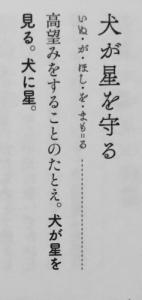 犬が星を守る
いぬ・が・ほし・を・まも＝る
高望みをすることのたとえ。犬が星を
見る。犬に星。